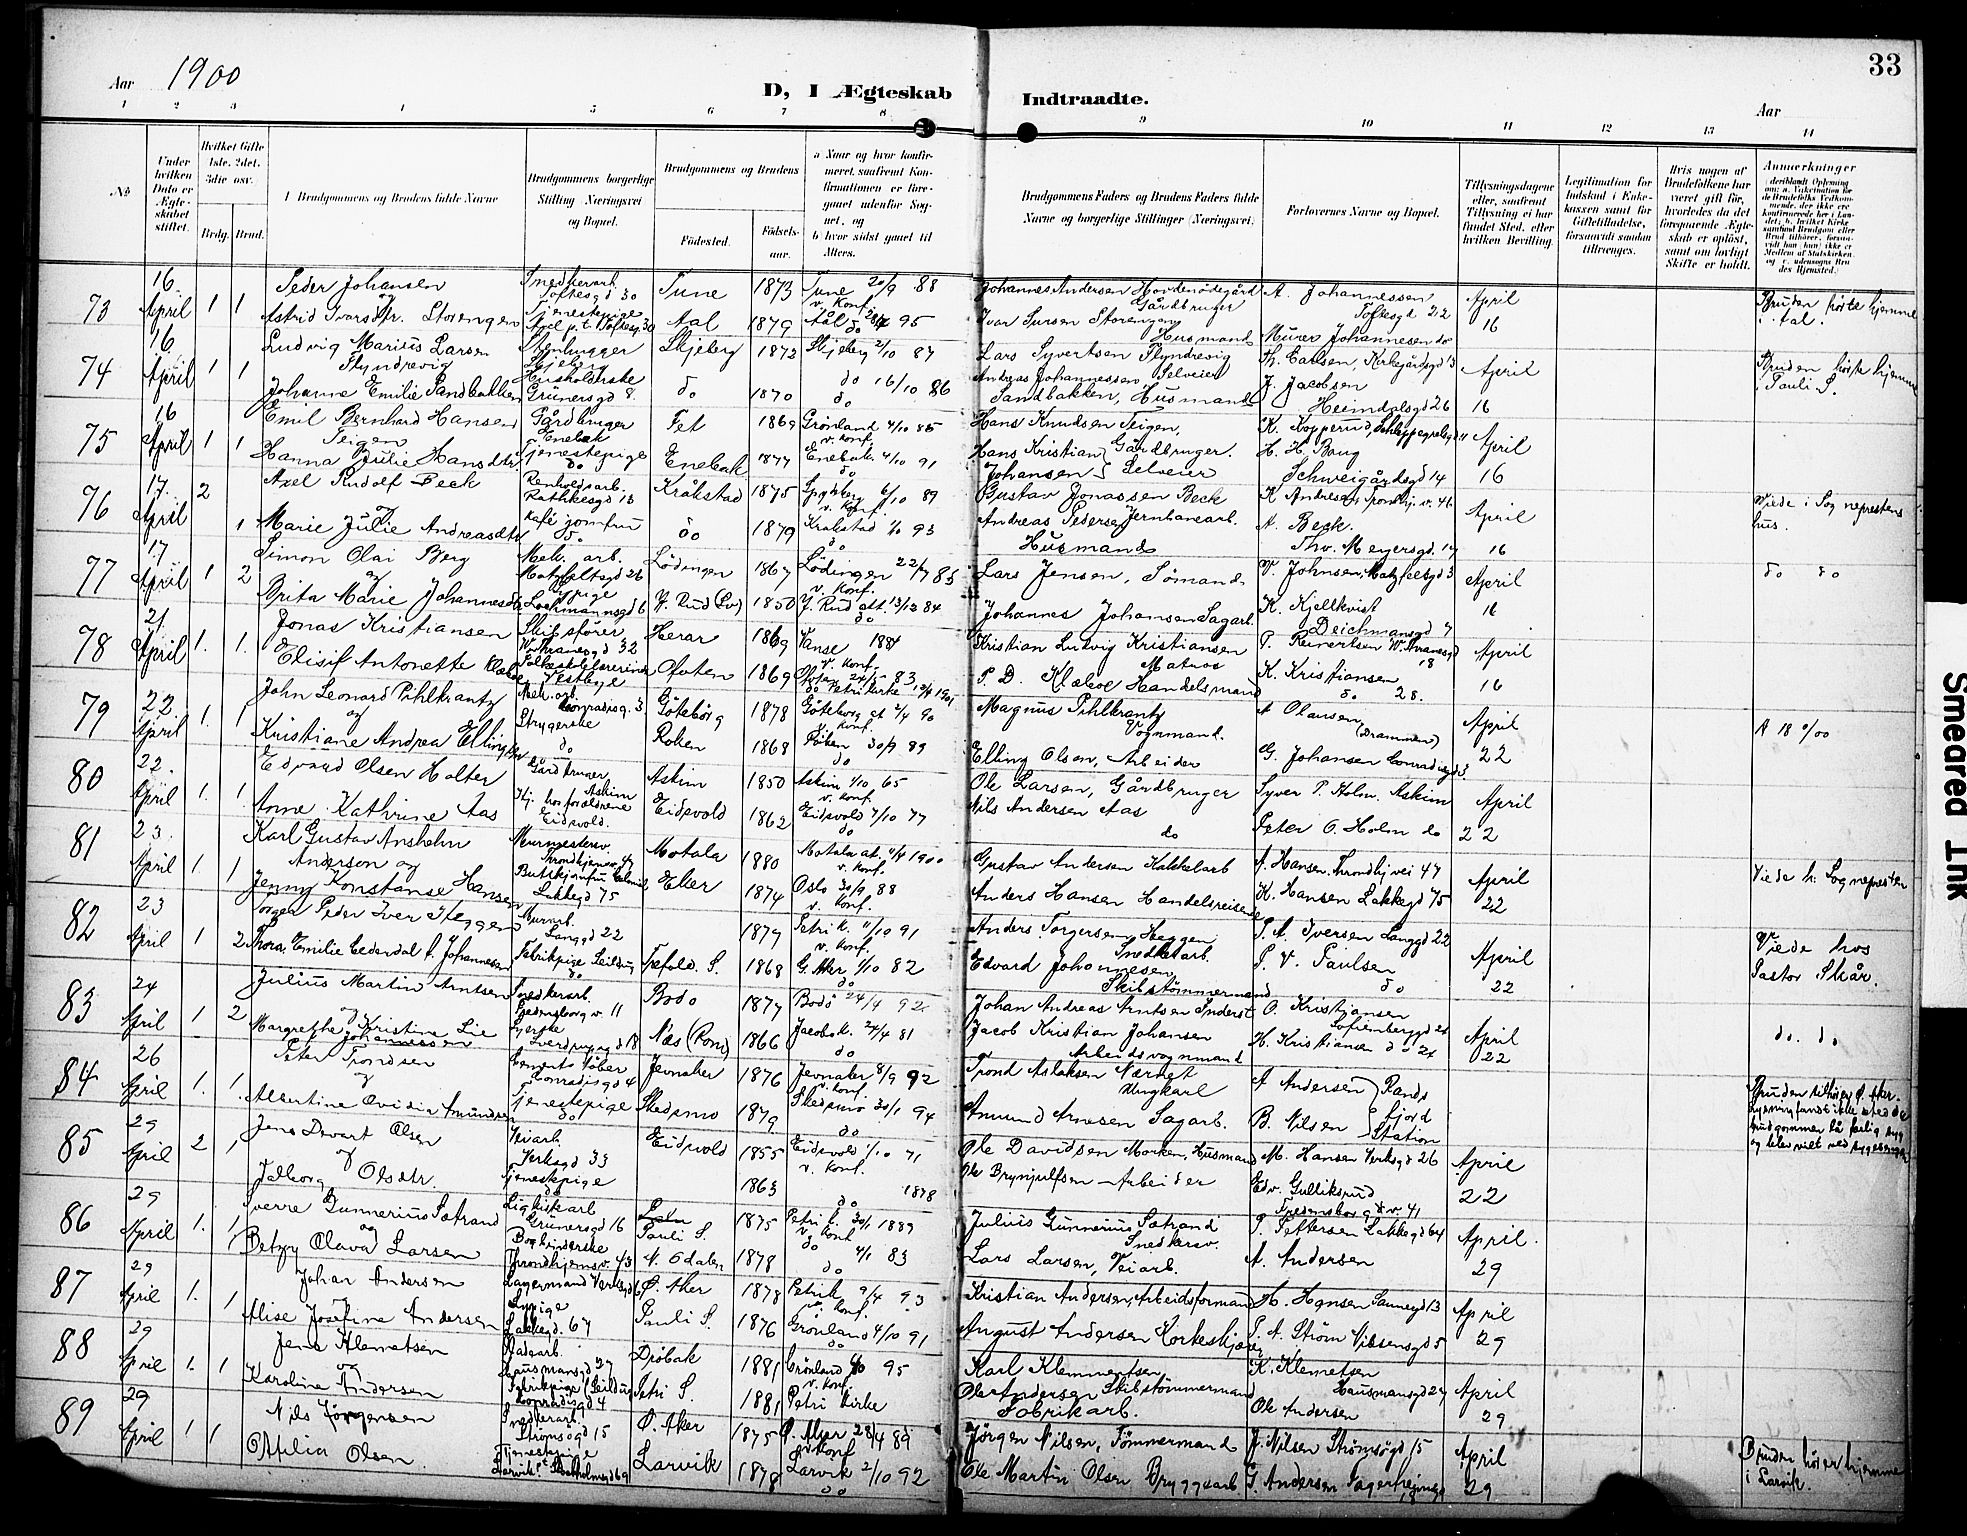 33
Aar 1900
D, I Ægteskab Indtraadte.
Aar
1 2 3 4 5 6 7 8 9 10 11 12 13 14
No
Under hvilken Dato er Ægteskabet stiftet.
Hvilket Gifte 1ste, 2det, 3die osv.
Brdg. Brud.
Brudgommens og Brudens fulde Navne
Brudgommens borgerlige Stilling (Næringsvei og Bopæl.
Brudgommens og Brudens
Fødested. Fødselsaar.
a Naar og hvor konfirmeret, saafremt Konfirmationen er foregaaet udenfor Sognet, og b) hvor sidst gaaet til Alters.
Brudgommens Faders og Brudens Faders fulde Navne og borgerlige Stillinger (Næringsvei.
Forlovernes Navne og Bopæl.
Tillysningsdagene eller, saafremt Tillysning ei har fundet Sted, efter hvilken Bevilling.
Legitimation for Indskud i Enkekassen samt for Giftetilladelse, forsaavidt saadan tiltrænges.
Hvis nogen af Brudefolkene har været gift før, hvorledes da det foregaaende Ægteskab er opløst, samt om lovligt Skifte er holdt.
Anmærkninger
73 16 April 1 1 Peder Johansen Snedkerarb. Toftesgd 30 Tune 1873 Tune 20/9 88 v. Konf. Johannes Andersen Hovdenødegård Gårdbruger A. Johannessen Toftesgd 22 April 16
og Astrid Ivarsdtr. Storengen Tjenestepige Aal p.t. Toftesg. 30 Aal 1879 Aål 95 do Ivar Iversen Storengen Husmand Murer Johannesen do
Bruden hörte hjemme i Aal.
74 16 April 1 1 Ludvig Marius Larsen Flyndrevig Stenhugger Skjeberg Skjeberg 1872 Skjeberg 2/10 87 do Lars Syvertsen Flyndrevig Selveier Th. Carlsen, Kirkegårdsgd 13 April 16
Johanne Emilie Sandbakken Husholderske Grünersgd 8 do 1870 do 16/10 86 do Andreas Johannessen Sandbakken, Husmand J. Jacobsen Heimdalsgd 26
Bruden hörte hjemme i Pauli S.
75 16 April 1 1 Emil Bernhard Hansen Teigen Gårdbruger Enebak Fet 1869 Grönland 4/10 85 v. Konf. Hans Knudsen Teigen, Gårdbruger. K. Kopperud, Schleppegrelsgd 11 April 16
Hanna Julie Hansdtr. Tjenestepige do Enebak 1877 Enebak 4/10 91 do Hans Kristian Johansen Selveier H. H. Berg Schweigårdsgd 14
76 17 April 2 1 Axel Rudolf Beck Renholdsarb. Rathkesgd 13 Kråkstad 1875 Spydeberg 6/10 89 v. Konf. Gustav Jonassen Beck Jernbanearb. K. Andresen Trondhj. v. 46 April 16
og Marie Julie Andreasdtr Kafé jomfru do do 1879 Krakstad 93 do Andreas Pedersen Husmand A. Beck. Thv. Meyersgd. 14
Viede i Sogneprestens hus.
77 17 April 1 2 Simon Olai Berg Mek. arb. Motzfeltsgd 26 Lödingen 1867 Lödingen 22/7 83 v. Konf. Lars Jensen, Sömand. V. Johnsen, Motzfeltsgd 3 April 16
og Brita Marie Johannesdtr Sypige Lochmannsgd 6 V. Rud (Sv) 1850 V. Rud att. 13/12 84 do Johannes Johansen Sagarb. K. Kjellkvist Deichmansgd 7
do do
78 21. April 1. 1. Jonas Kristiansen Skibsförer W. Thranesgd 32 Herar 1869 Vanse 1884 v. Konf. Kristian Ludvig Kristiansen Matros P. Reinertsen W. Thranesgd 18 April 16
og Elisif Antonette Klæboe Folkeskolelærerinde Vestbyge Ofoten 1869 Ofoten 24/5 83 do Petri Kirke P. D. Klæboe Handelsmand K. Kristiansen do 28.
79 22 April 1. 1 John Leonard Pihlkrantz Mek. arb. Conradisg. 3 Göteborg 1878 Göteborg at 2/4 90 Konf. Magnus Pihlkrantz Vognmand. A Olausen (Drammen) April 22
og Kristiane Andrea Ellingsen Strygerske do Röken 1868 Röken 30/9 83 do Elling Olsen, Arbeider G. Johansen Conradisgd 3
A 18 0/00
80 22. April 1. 1. Edvard Olsen Holter Gårdbruger Askim Askim 1850 Askim 4/10 65 v. Konf. Ole Larsen, Gårdbruger Syver P. Holm. Askim April 22
Anne Kathrine Aas Hj. hos forældrene Eidsvold. Eidsvold 1862 Eidsvold 7/10 77 do Nils Andersen Aas do Peter O. Holm do
81 23. April 1. 1 Karl Gustav Anshelm Anderson og Murmestersv. Trondhjemsv. 47 Motala 1880 Motala at. 4/4 1900 v. Konf. Gustav Andersen Kakkelarb A. Hansen, Throndhj vei 47 April 22
Jenny Konstanse Hansen Lakkegd 75 Eker 1874 Oslo 30/9 88 v. Konf. Anders Hansen Handelsreisende K. Hansen Lakkegd 75
Viede h. Sognepresten
82 23 April 1 2 Torger Peder Iver Heggen Murarb. Langgd 22 1879 Petri k. 11/10 91 v. Konf. Anders Torgersen Heggen Snedkerarb. P. A. Iversen Langgd 22 April 22
Thora Emilie Cedersdal f. Johannesen Fabrikpige Seildug do Fæfold. S. 1868 G. Aker 1/10 82 do Edvard Johannesen Skibstömmermand P. V. Paulsen do
Viede hos Pastor Skår.
83 24 April 1 2 Julius Martin Arntsen Snedkerarb. Fredensborg v. 11 Bodö 1877 Bodö 24/4 92 Johan Andreas Arntsen Inderst O. Kristiansen Sofienberggd 24 April 22
og Margrethe Kristine Lie Johannessen Syerske Sverdrupsgd 18 Næs (Rom) 1866 Jacobs k. 24/4 81 do Jacob Kristian Johansen Arbeidsvognmand H. Kristiansen do 24
do. do
84 26 April 1. 1. Peter Trondsen Cements stöber Conradisgd 4 Jevnaker 1876 Jevnaker 8/9 92 v. Konf. Trond Aslaksen Nærnet Ungkarl A Andersen Rands fjord Station
og Albertine Ovidia Amundsen Tjenestepige do Skedsmo 1879 Skedsmo 30/1 94 do Amund Arnesen Sagarb. B. Nilsen
Bruden tilhörer Ö. Aker. Lysning fandt ikke sted da brudgommen lå farlig syg og blev viet ved sygesengen
85 29 April 2 1 Jens Evert Olsen Veiarb. Verksgd 33 Eidsvold 1855 Eidsvold 1/10 71 v. Konf. Ole Davidsen Morken, Husmand M. Hansen Verksgd 26 April 22
og Jelborg Olsdtr. Tjenestepige do 1863 do 1878 Ole Brynjulfsen Arbeider Edv. Gulliksrud Fredensborg v. 41
86 29 April 1. 1. Sverre Gunnerius Sætrand Ligkistearb Grünersgd 16 Pauli S. 1875 Petri k. 30/1 1889 v. Konf Julius Gunnerius Sætrand Snedkersv. P. Pettersen Lakkegd 64 April 29
og Betzy Olava Larsen Bogbinderske Throndhjemsv. 43 N. Odalen 1878 do 4/1 83 do Lars Larsen, Veiarb. A. Andersen
87 29 April 1. 1 Johan Andersen Lagermand Verksgd 6 Ö. Aker 1878 Petrik 9/4 93 v. Konf. Kristian Andersen, Arbeidsformand H. Hansen Sannegd 13 April 29
Alise Josefine Andersen Sypige Lakkegd. 67 Pauli S. 1876 Grönland 4/10 91 do August Andersen Korkeskjærer P. A. Ström Nilsensgd 5
88 29 April 1. 1 Jens Klemetsen Pladearb. Hausmansgd 27 Dröbak 1881 Grönland 95 v. Konf. Karl Klemmertsen Skibstömmermand K. Klemetsen Hausmansgd 27 April 29
og Karoline Andersen Fabrikpige (Seildug Conradisgd 4 Petri S. 1881 Petri Kirke Ole Andersen Fabrikarb. Ole Andersen
89 29 April 1 1 Nils Jörgensen Snedkerarb. Strömsögd 15 Ö. Aker 1875 Ö. Aker 28/4 89 v. Konf Jörgen Nilsen, Tömmermand J. Nilsen Strömsögd 15 April 29
Otilia Olsen Tjenestepige Larvik Larvik 1878 Larvik 2/10 92 do Ole Martin Olsen Bryggearb G. Andersen
Bruden hörer hjemme i Larvik.
Smeared Ink